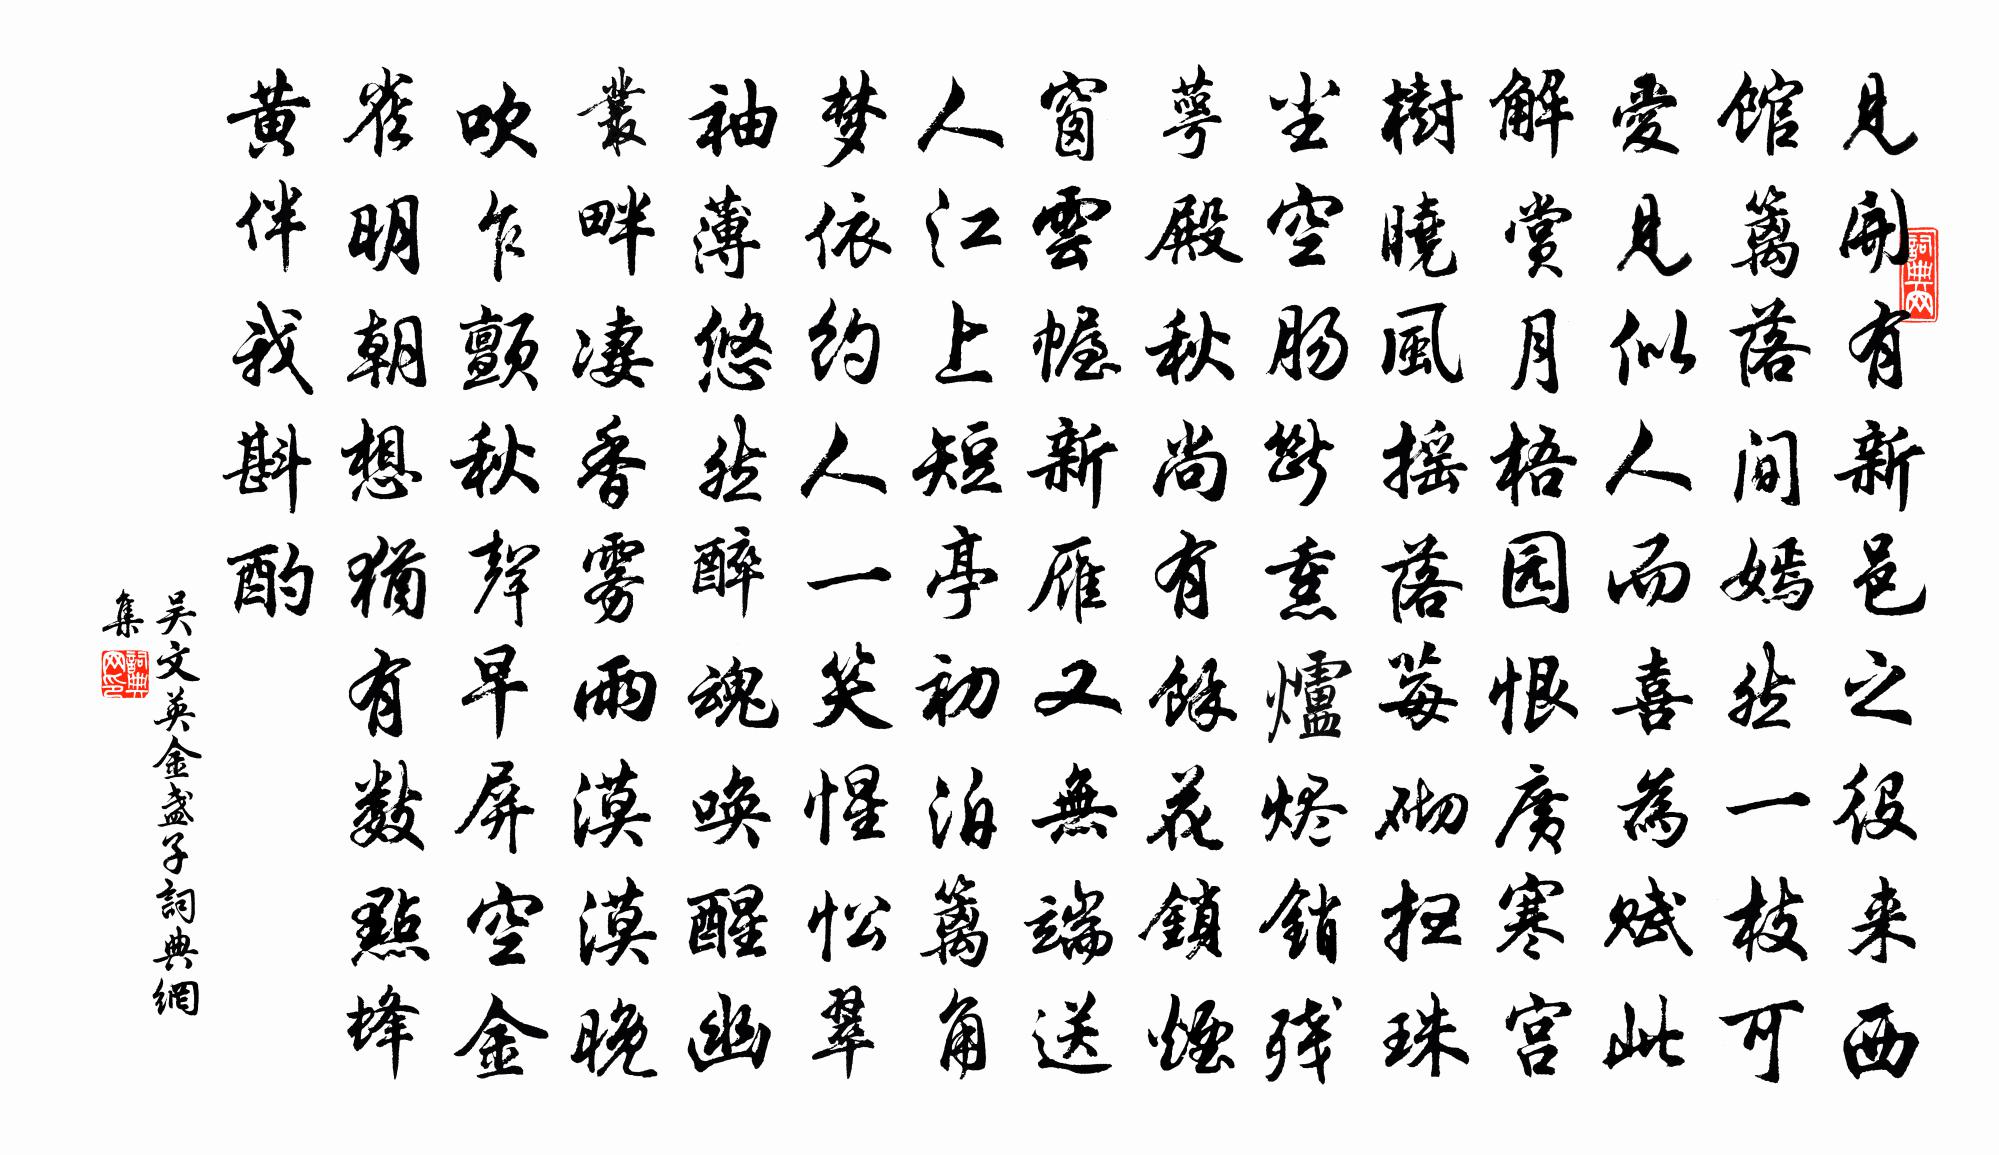 見開有新邑之役来西
馆篱落间嫣然一枝可
愛見似人而喜為赋此
解赏月梧园恨廣寒宫
樹曉風摇落莓砌扫珠
尘空肠斷熏爐烬銷残
萼殿秋尚有餘花鎖煙
窗雲幄新雁又無端送
人江上短亭初泊篱角
梦依约人一笑惺忪翠
袖薄悠然醉魂唤醒幽
叢畔凄香雾雨漠漠晚
吹乍颤秋聲早屏空金
雀明朝想猶有數點蜂
黄伴我斟酌
吴文英金盏子詞典網
集
詞典网
詞典网印